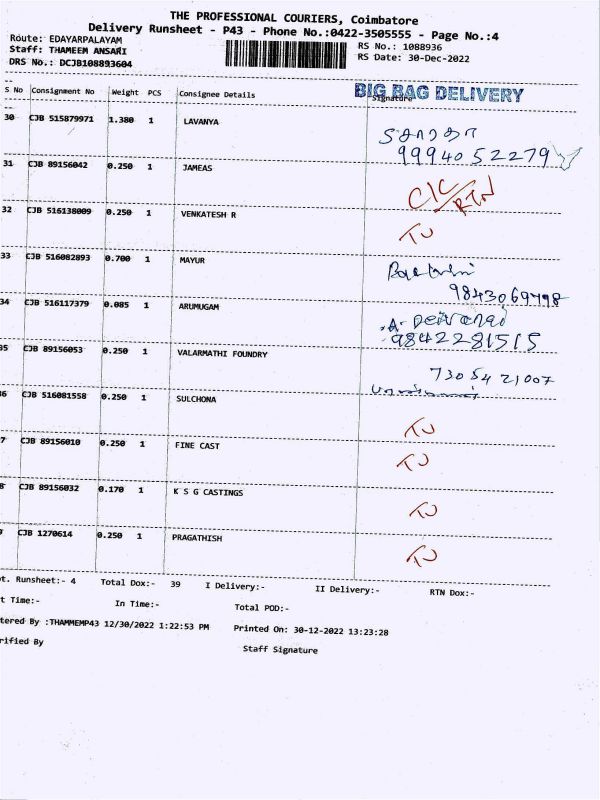 THE PROFESSIONAL COURIERS, Coimbatore
Delivery Runsheet - P43 - Phone No.:0422-3505555 - Page No.:4
Route: EDAYARPALAYAM
RS No.: 1088936
Staff: THAMEEM ANSARI
RS Date: 30-Dec-2022
DRS No.: DCJB108893604
BIG BAG DELIVERY
S No Consignment No Weight PCS Consignee Details Signature
30 CJB 515879971 1.380 1 LAVANYA
9994052279
31 CJB 89156042 0.250 1 JAMEAS C/C/RTN
32 CJB 516138009 0.250 1 VENKATESH R TU
33 CJB 516082893 0.700 1 MAYUR
9843069498
34 CJB 516117379 0.085 1 ARUMUGAM A.
9842281515
35 CJB 89156053 0.250 1 VALARMATHI FOUNDRY 7305421007
36 CJB 516081558 0.250 1 SULCHONA TU
7 CJB 89156010 0.250 1 FINE CAST TU
8 CJB 89156032 0.170 1 K S G CASTINGS TU
9 CJB 1270614 0.250 1 PRAGATHISH TU
ot. Runsheet:- 4 Total Dox:- 39 I Delivery:- II Delivery:- RTN Dox:-
t Time:- In Time:- Total POD:-
tered By :THAMMEMP43 12/30/2022 1:22:53 PM Printed On: 30-12-2022 13:23:28
rified By Staff Signature